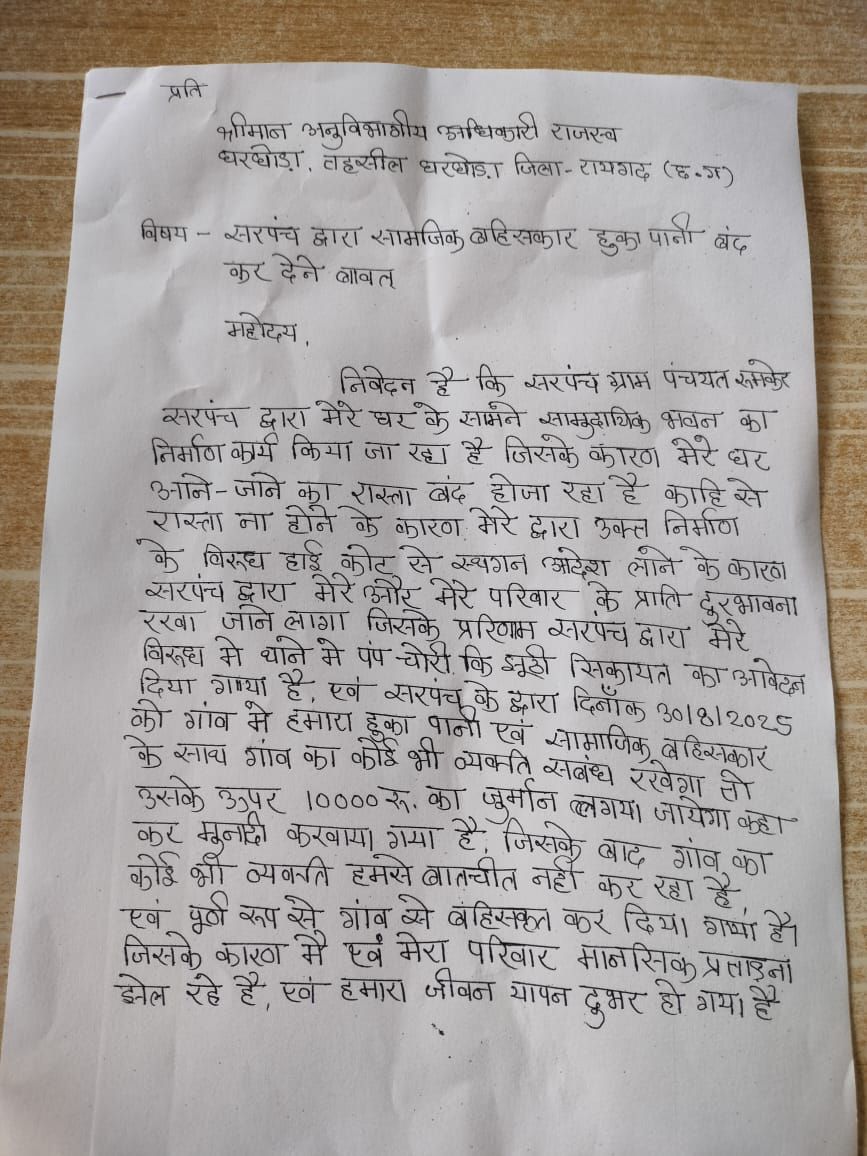 प्रति
श्रीमान अनुविभागीय अधिकारी राजस्व
घरघोड़ा, तहसील घरघोड़ा जिला- रायगढ (छ.ग)
विषय - सरपंच द्वारा सामजिक बहिसकार हुका पानी बंद
कर देने बावत्
महोदय,
निवेदन है कि सरपंच ग्राम पंचयत रूमकेर
सरपंच द्वारा मेरे घर के सामने सामुदायिक भवन का
निर्माण कार्य किया जा रहा है जिसके कारण मेरे घर
आने-जाने का रास्ता बंद होजा रहा है काहि से
रास्ता ना होने के कारण मेरे द्वारा उक्त निर्माण
के विरूध हाई कोट से स्थगन आदेश लाने के कारण
सरपंच द्वारा मेरे और मेरे परिवार के प्राति दुरभावना
रखा जाने लागा जिसके प्ररिणाम सरपंच द्वारा मेरे
विरूध मे थाने मे पंप चोरी कि झूठी सिकायत का आवेदन
दिया गाया है, एवं सरपंच के द्वारा दिनाँक 30/8/2025
को गांव मे हमारा हुका पानी एवं सामाजिक बहिसकार
के साथ गांव का कोई भी व्यक्ति सबंध रखेगा तो
उसके ऊपर 10000 रू. का जुर्मान लगाया जायेगा कहा
कर मुनादी करवाया गया है, जिसके बाद गांव का
कोई भी व्यक्ती हमसे बातचीत नही कर रहा है,
एवं पूर्ण रूप से गांव से बहिसकृत कर दिया गया है।
जिसके कारण मै एवं मेरा परिवार मानसिक प्रताड़ना
झेल रहे है, एवं हमारा जीवन यापन दुभर हो गया है